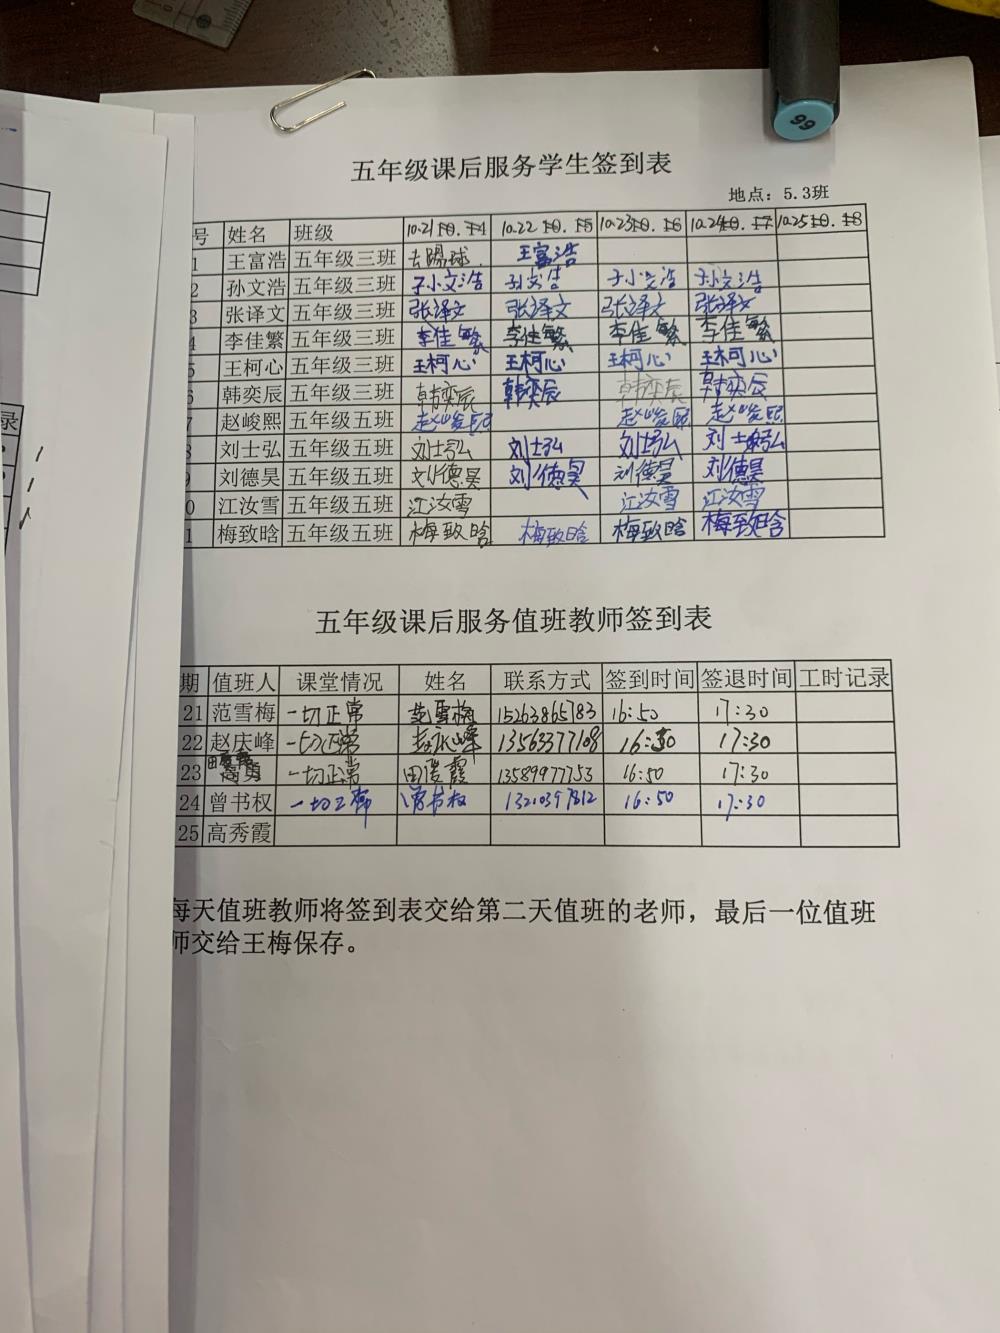 99
五年级课后服务学生签到表
地点：5.3班
号 姓名 班级 10.21 10.22 10.23 10.24 10.25
1 王富浩 五年级三班 去踢球. 王富浩
2 孙文浩 五年级三班 孙文浩 孙文浩 孙文浩 孙文浩
3 张译文 五年级三班 张译文 张译文 张译文 张译文
4 李佳繁 五年级三班 李佳繁 李佳繁 李佳繁 李佳繁
5 王柯心 五年级三班 王柯心 王柯心 王柯心 王柯心
6 韩奕辰 五年级三班 韩奕辰 韩奕辰 韩奕辰 韩奕辰
7 赵峻熙 五年级五班 赵峻熙 赵峻熙 赵峻熙
8 刘士弘 五年级五班 刘士弘 刘士弘 刘士弘 刘士弘
9 刘德昊 五年级五班 刘德昊 刘德昊 刘德昊 刘德昊
0 江汝雪 五年级五班 江汝雪 江汝雪 江汝雪
1 梅致晗 五年级五班 梅致晗 梅致晗 梅致晗 梅致晗
五年级课后服务值班教师签到表
期 值班人 课堂情况 姓名 联系方式 签到时间 签退时间 工时记录
21 范雪梅 一切正常 范雪梅 15263865783 16:50 17:30
22 赵庆峰 一切正常 13563377108 16:50 17:30
23 高勇 一切正常 田俊霞 13589977753 16:50 17:30
24 曾书权 一切正常 曾书权 13210397812 16:50 17:30
25 高秀霞
每天值班教师将签到表交给第二天值班的老师，最后一位值班
师交给王梅保存。
录